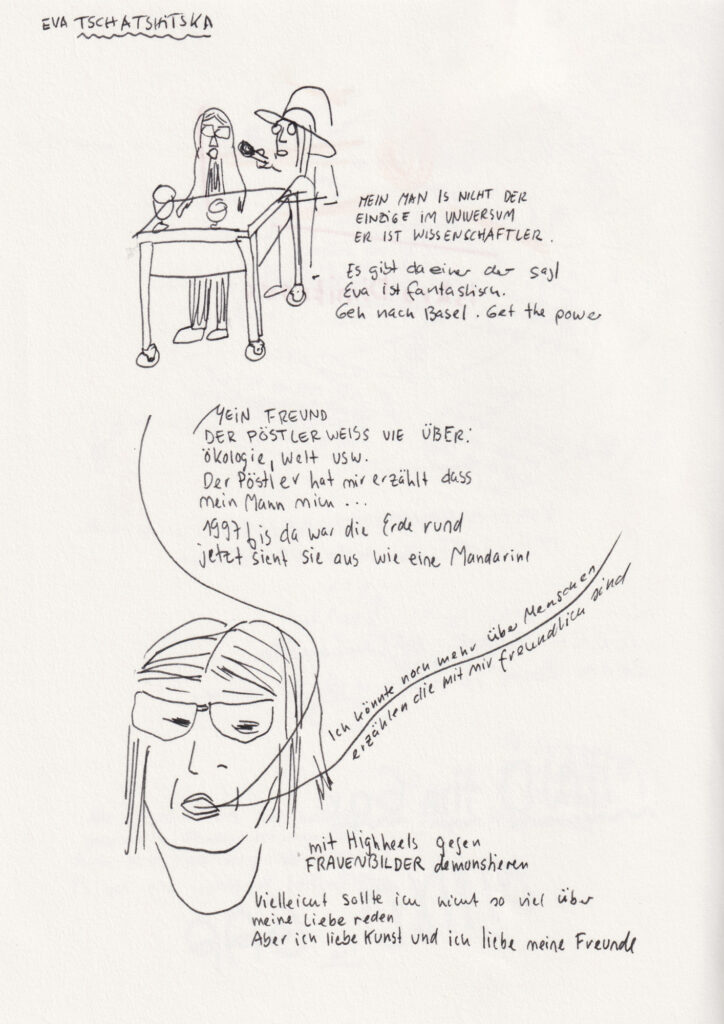 EVA TSCHATSIHTSKA
MEIN MAN IS NICHT DER
EINZIGE IM UNIVERSUM
ER IST WISSENSCHAFTLER.
Es gibt da einer der sagt
Eva ist fantastisch.
Geh nach Basel. Get the power
MEIN FREUND
DER PÖSTLER WEISS VIE ÜBER:
ökologie, Welt usw.
Der Pöstler hat mir erzählt dass
mein Mann mich ...
1997 bis da war die Erde rund
jetzt sieht sie aus wie eine Mandarine
Ich könnte noch mehr über Menschen
erzählen die mit mir freundlich sind
mit Highheels gegen
FRAUENBILDER demonstieren
Vielleicht sollte ich nicht so viel über
meine Liebe reden
Aber ich liebe Kunst und ich liebe meine Freunde